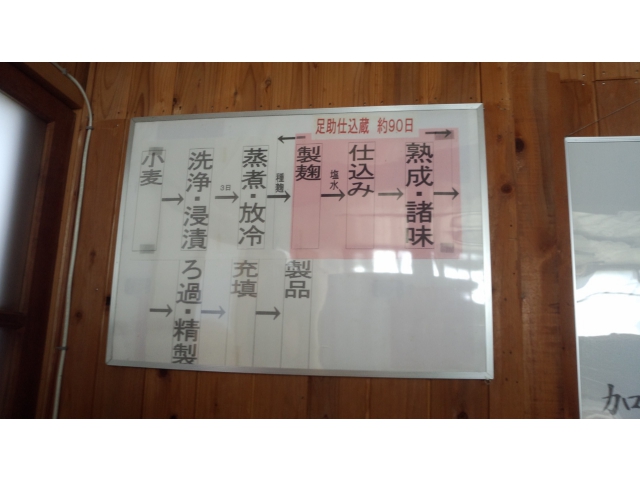 足助仕込蔵 約90日
小麦
洗浄・浸漬
3日
蒸煮・放冷
種麹
製麹
塩水
仕込み
熟成・諸味
ろ過・精製
充填
製品
加